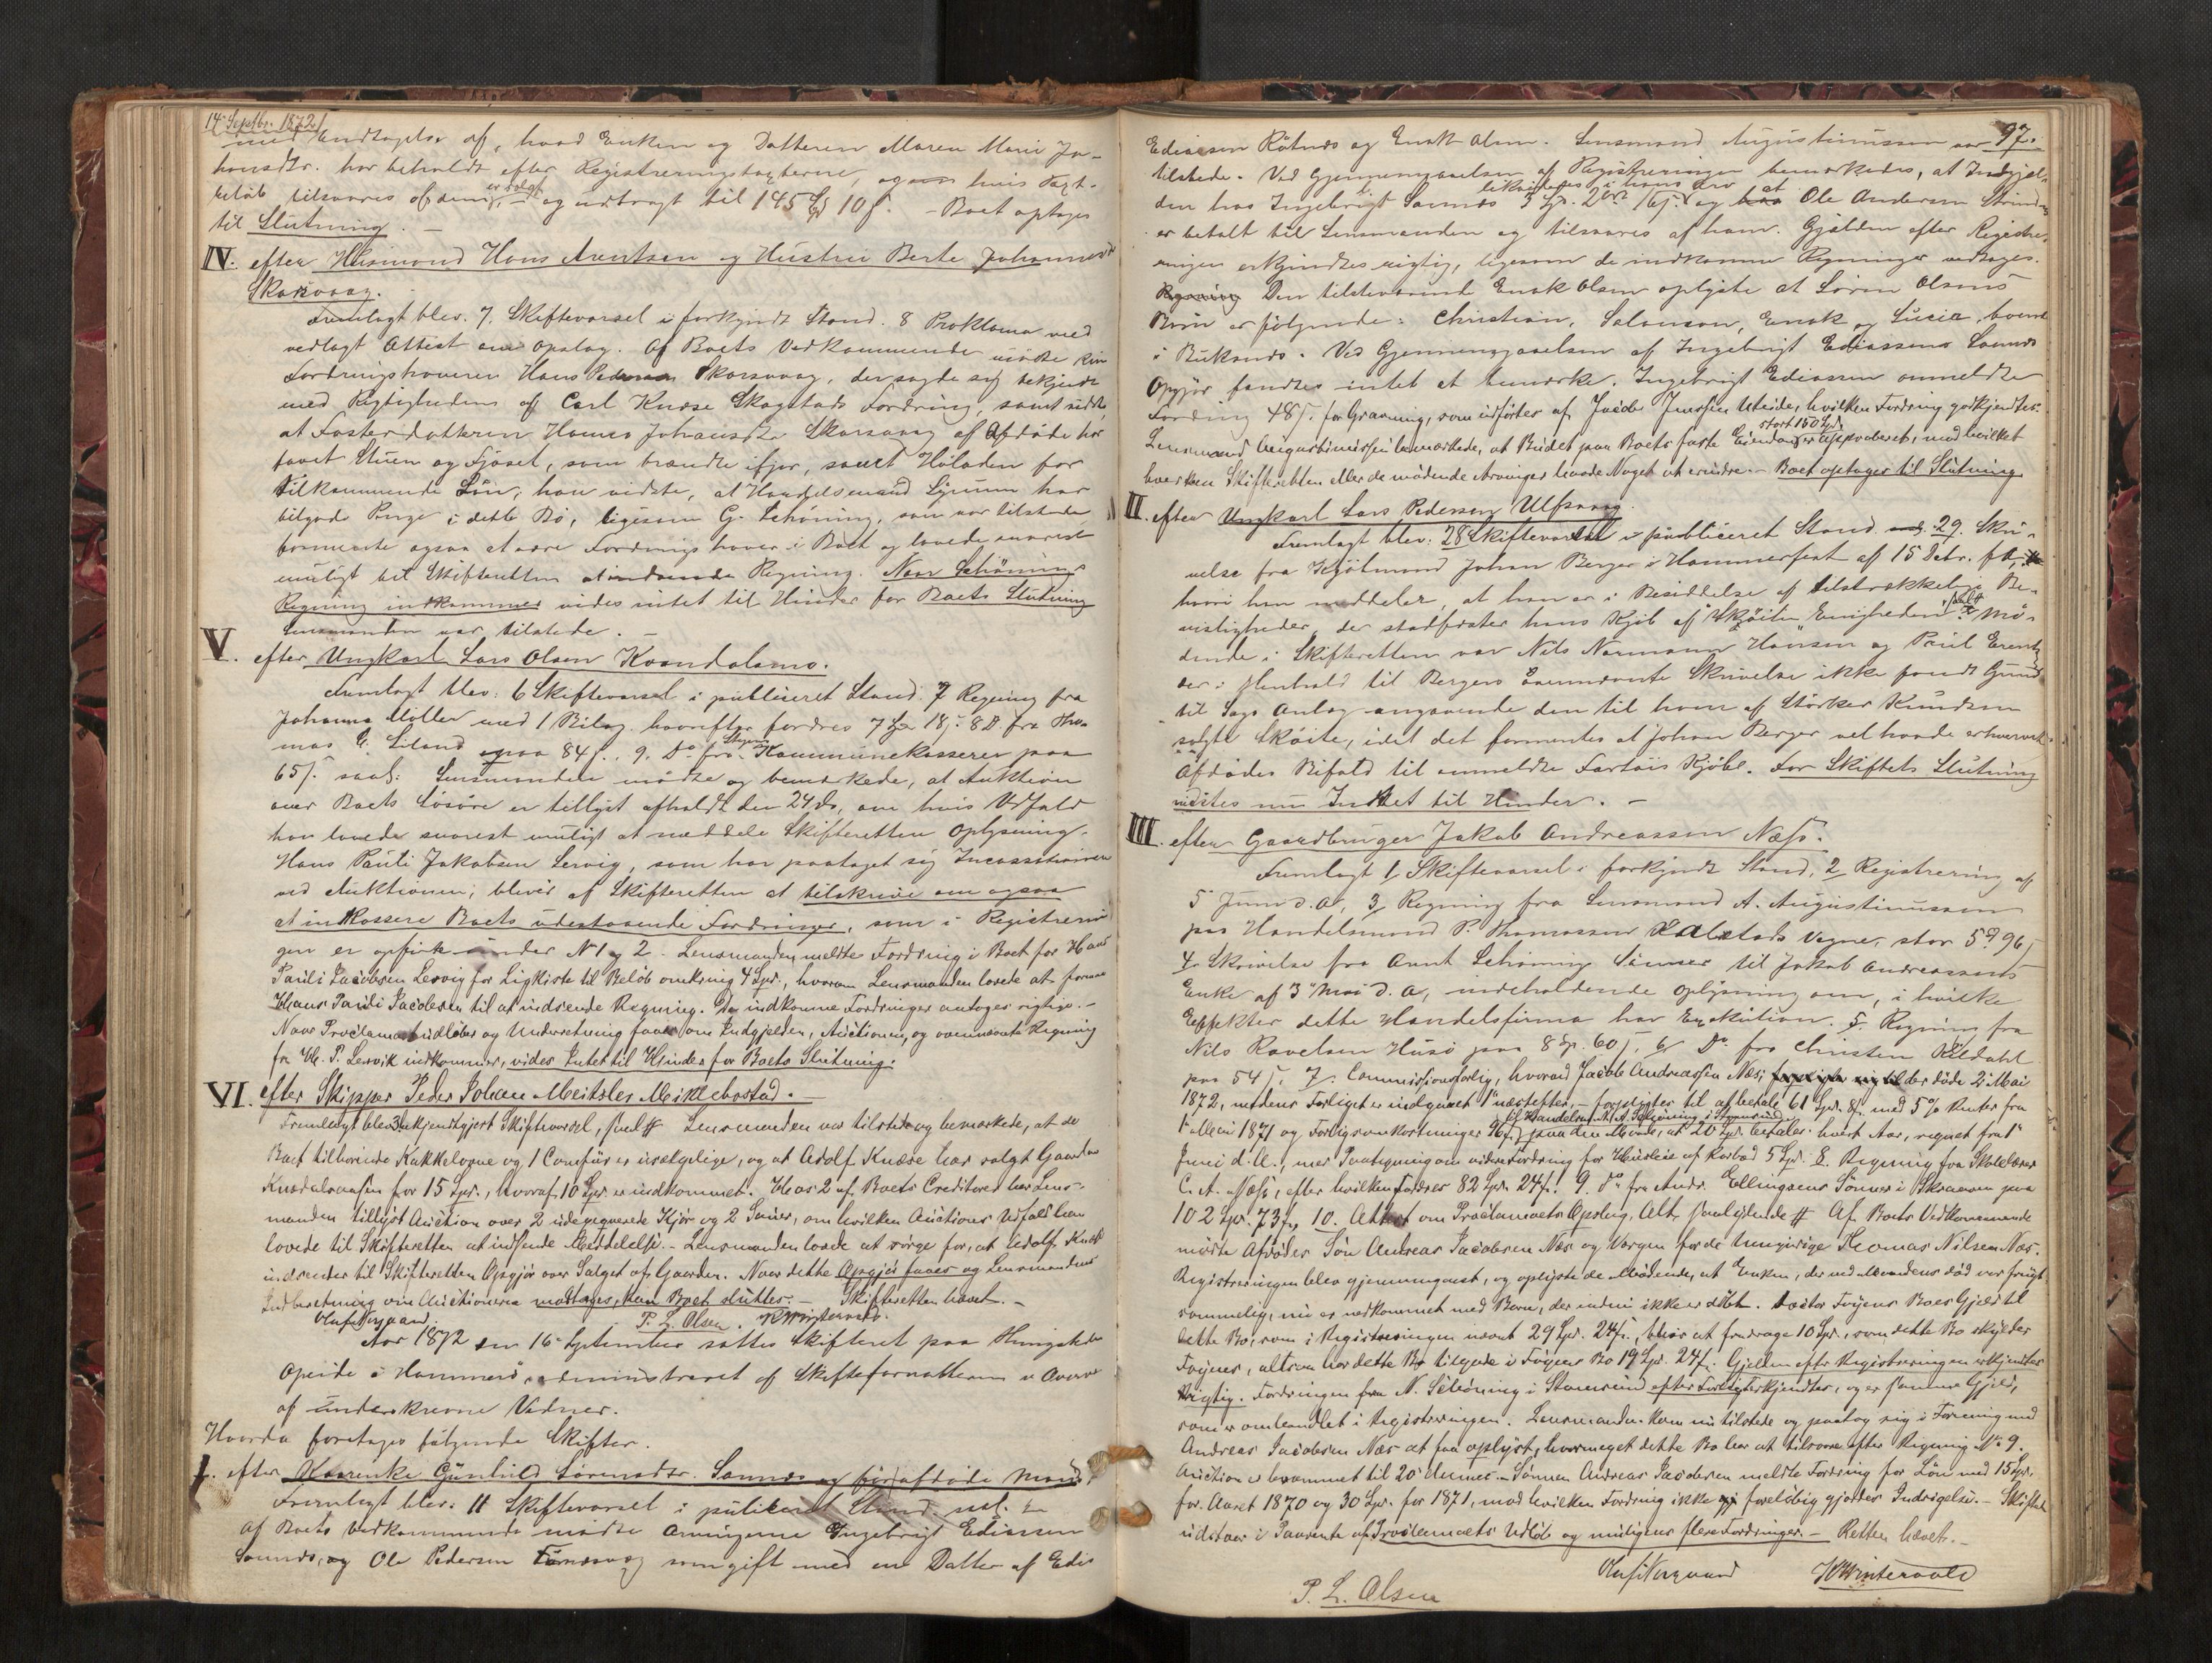 14 Septbr. 1872
med Undtagelse af, hvad Enken og Datteren Maren Marie Jo-
hansdtr. har beholdt efter Registreringstaxterne, og hvis Taxt-
beløb tilsvares af dem, er solgt og udbragt til 145 Spd 10 s. – Boet optages
til Slutning. –
IV. efter Husmand Hans Arentsen og Hustru Berte Johannesdr
Skarsvaag.
Fremlagt blev. 7. Skiftevarsel i forkyndt Stand. 8 Proklama med
vedlagt Attest om Opslag. Af Boets Vedkommende mødte kun
Fordringshaveren Hans Pedersen Skarsvaag, der sagde sig bekjendt
med Rigtigheden af Carl Knøse Skogstads Fordring, samt vidste
at Fosterdatteren Hanna Johansdtr Skarsvaag af Afdøde har
faaet Stuen og Fjøset, som brændte ifjor, samt Høladen for
tilkommende Løn, han vidste, at Handelsmand Lynum har
tilgode Penge i dette Bo, ligesom G. Schøning, som var tilstede
formente ogsaa at være Fordringshaver i Boet og lovede snarest
muligt til Skifteretten at indsende Regning. Naar Schønings
Regning indkommer vides intet til Hinder for Boets Slutning
Lensmanden var tilstede. –
V. efter Ungkarl Lars Olsen Kvandalsmo.
Fremlagt blev: 6 Skiftevarsel i publiceret Stand. 7 Regning fra
Johanna Møller med 1 Bilag hvorefter fordres 7 Sp 18 s. 8 Do fra Tho-
mas E. Liland paa 84 s. 9. Do fra Kommunekasserer paa
65 s. saal: Lensmanden mødte og bemærkede, at Auktion
over Boets Løsøre er tillyst afholdt den 24 ds, om hvis Udfald
han lovede snarest muligt at meddele Skifteretten Oplysning.
Hans Pauli Jakobsen Lervig, som har paataget sig Incassationen
ved Auktionen, bliver af Skifteretten at tilskrive om ogsaa
at indkassere Boets udestaaende Fordringer, som i Registrerin-
gen er opført under No 1 og 2. Lensmanden meldte Fordring i Boet for Hans
Pauli Jacobsen Lervig for Ligkiste til Beløb omkring 4 Spd., hvorom Lensmanden lovede at formaa
Hans Pauli Jacobsen til at indsende Regning. De indkomne Fordringer antoges rigtige. –
Naar Proclama er udløbet og Underretning faaes om Indgjælden, Auctionen, og ovennævnte Regning
fra H. P. Lervik indkommer, vides Intet til Hinder for Boets Slutning.
VI. efter Skipper Peder Johan Meitsler Meiklebostad. –
Fremlagt blev 3. bekjendtgjort Skiftevarsel, saal # Lensmanden var tilstede og bemærkede, at de
Boet tilhørende Kakkelovne og 1 Comfur er usælgelige, og at Adolf Knøse har solgt Gaarden
for 15 Spd., hvoraf 10 Spd. er indkommet. Hos 2 af Boets Creditorer har Lens-
manden tillyst Auction over 2 Kjør og 2 Sauer, om hvilken Auctions Udfald han
lovede til Skifteretten at indsende Meddelelse. – Lensmanden lovede at sørge for, at Adolf Knøse
indsender til Skifteretten Opgjør over Salget af Gaarden. Naar dette Opgjør faaes og Lensmandens
Indberetning om Auctionerne modtages, kan Boet sluttes. – Skifteretten hævet. –
Oluf Norgaard. P. L. Olsen. K Wintervold.
Aar 1872 den 16 September sattes Skifteret paa Thingstedet
Opeide i Hammerø, administreret af Skifteforvalteren i Overvær
af underskrevne Vidner.
Hvorda foretoges følgende Skifter.
I. efter Kaarenke Gunhild Sørensdtr. Sannes og før afdøde Mand
Fremlagt blev: 11 Skiftevarsel i publiceret Stand
Af Boets Vedkommende mødte Arvingerne Ingebrigt Ediassen
Sannes, og Ole Pedersen som gift med en Datter af Edis
97.
Ediassen Rotnes og Enok Olsen. Lensmand Augustinussen var
tilstede. Ved Gjennemgaaelsen af Registreringen bemærkedes, at Indgjæl-
den hos Ingebrigt Sannes 3 Sp. likvideres i hans Arv og at Ole Andersen
er betalt til Lensmanden og tilsvares af ham. Gjælden efter Registre-
ringen erkjendtes rigtig, ligesom de indkomne Regninger vedtoges.
Den tilstedeværende Enok Olsen oplyste at Søren Olsens
Børn er følgende: Christian, Salomon, Enok og Lucia, boende
i Buksnes. Ved Gjennemgaaelsen af Ingebrigt Ediassens Sannes
Opgjør fandtes intet at bemærke. Ingebrigt Ediassen anmeldte
Fordring 48 s. for Gravning, som udførtes af Jacob Jenssen Uteide, hvilken Fordring godkjendtes.
Lensmand Augustinussen bemærkede, at Budet paa Boets faste Eiendom, stort 150 Spd, er approberet, mod hvilket
hverken Skifteretten eller de mødende Arvinger havde Noget at erindre. – Boet optages til Slutning
II. efter Ungkarl Lars Pedersen Ulfsvaag.
Fremlagt blev: 28 Skiftevarsel i publiceret Stand 29. Skri-
velse fra Kjøbmand Johan Berger i Hammerfest af 15
hvori han meddeler, at han er i Besiddelse af tilstrækkelige Be-
visligheder, der stadfæster hans Kjøb af Skøiten Enigheden, saal # Mø-
dende i Skifteretten var Nils Normann Hansen og Paul
der i Henhold til Bergers ovennævnte Skrivelse ikke fandt Grund
til Sags Anlæg angaaende den til ham af Størker Knudsen
solgte Skøite, idet det formentes at Johan Berger vel havde erhvervet
Afdødes Bifald til anmeldte Fartøis Kjøb. For Skiftets Slutning
vidstes nu Intet til Hinder. –
III. efter Gaardbruger Jakob Andreassen Næss.
Fremlagt 1 Skiftevarsel i forkyndt Stand, 2 Registrering af
5 Juni d. A., 3 Regning fra Lensmand A. Augustinussen
paa Handelsmand P. Thomassen Kalstads Vegne, stor 5 96 s
4. Skrivelse fra Arnt Schønings Sønner til Jakob Andreassens
Enke af 3 Mai d. A, indeholdende Oplysning om, i hvilke
Effekter dette Handelsfirma har Exekution. 5. Regning fra
Nils Ravelsen Husø paa 8 Sp. 60 s. 6 Do. fra Christen Kildahl
paa 54 s. 7. Commissionsforlig, hvorved Jacob Andreassen Næs, der døde 2 Mai
1872, medens Forliget er indgaaet 1 næstefter, – forpligtes til at betale 61 Spd. 8 s. med 5 % Renter fra
1 Mai 1871 og Forligsomkostninger 96 s til Handelsm. N. A. Schjøning i Stamsund, paa den Maade, at 20 Spd. betales hvert Aar, regnet fra 1
Juni d. A., med Paategning om videre Fordring for Husleie af Rorbod 5 Spd. 8. Regning fra Skolelærer
C. A. Næss, efter hvilken fordres 82 Spd. 24 s. 9. Do fra Andr. Ellingsens Sønner i Skraaven paa
102 Spd. 73 s., 10. Attest om Proclamaets Opslag. Alt saalydende # Af Boets Vedkommende
mødte Afdødes Søn Andreas Jacobsen Næs og Værgen for de Umyndige Thomas Nilsen Næs.
Registreringen blev gjennemgaaet, og oplyste de Mødende, at Enken, der ved Mandens død var frugt-
sommelig, nu er nedkommet med Barn, der endnu ikke er døbt. Doctor Føyens Boes Gjæld til
dette Bo, som i Registreringen nævnt 29 Spd. 24 s., bliver at fradrage 10 Spd., som dette Bo skylder
Føyens, altsaa har dette Bo tilgode i Føyens Bo 19 Spd. 24 s. Gjelden efter Registreringen erkjendtes
rigtig. Fordringen fra N. Schøning i Stamsund efter Forliget erkjendtes, og er samme Gjeld,
som er omhandlet i Registreringen. Lensmanden kom nu tilstede og paatog sig i Forening med
Andreas Jacobsen Næs at faa oplyst, hvormeget dette Bo har at tilsvare efter Regning No 9.
Auction er berammet til 20 dennes. – Sønnen Andreas Jacobsen meldte Fordring for Løn med 15 Spd.
for Aaret 1870 og 30 Spd. for 1871, mod hvilken Fordring ikke foreløbig gjordes Indsigelse. – Skiftet
udstaar i Paavente af Proclamaets Udløb og muligens flere Fordringer. – Retten hævet. –
Oluf Norgaard K Wintervold
P. L. Olsen